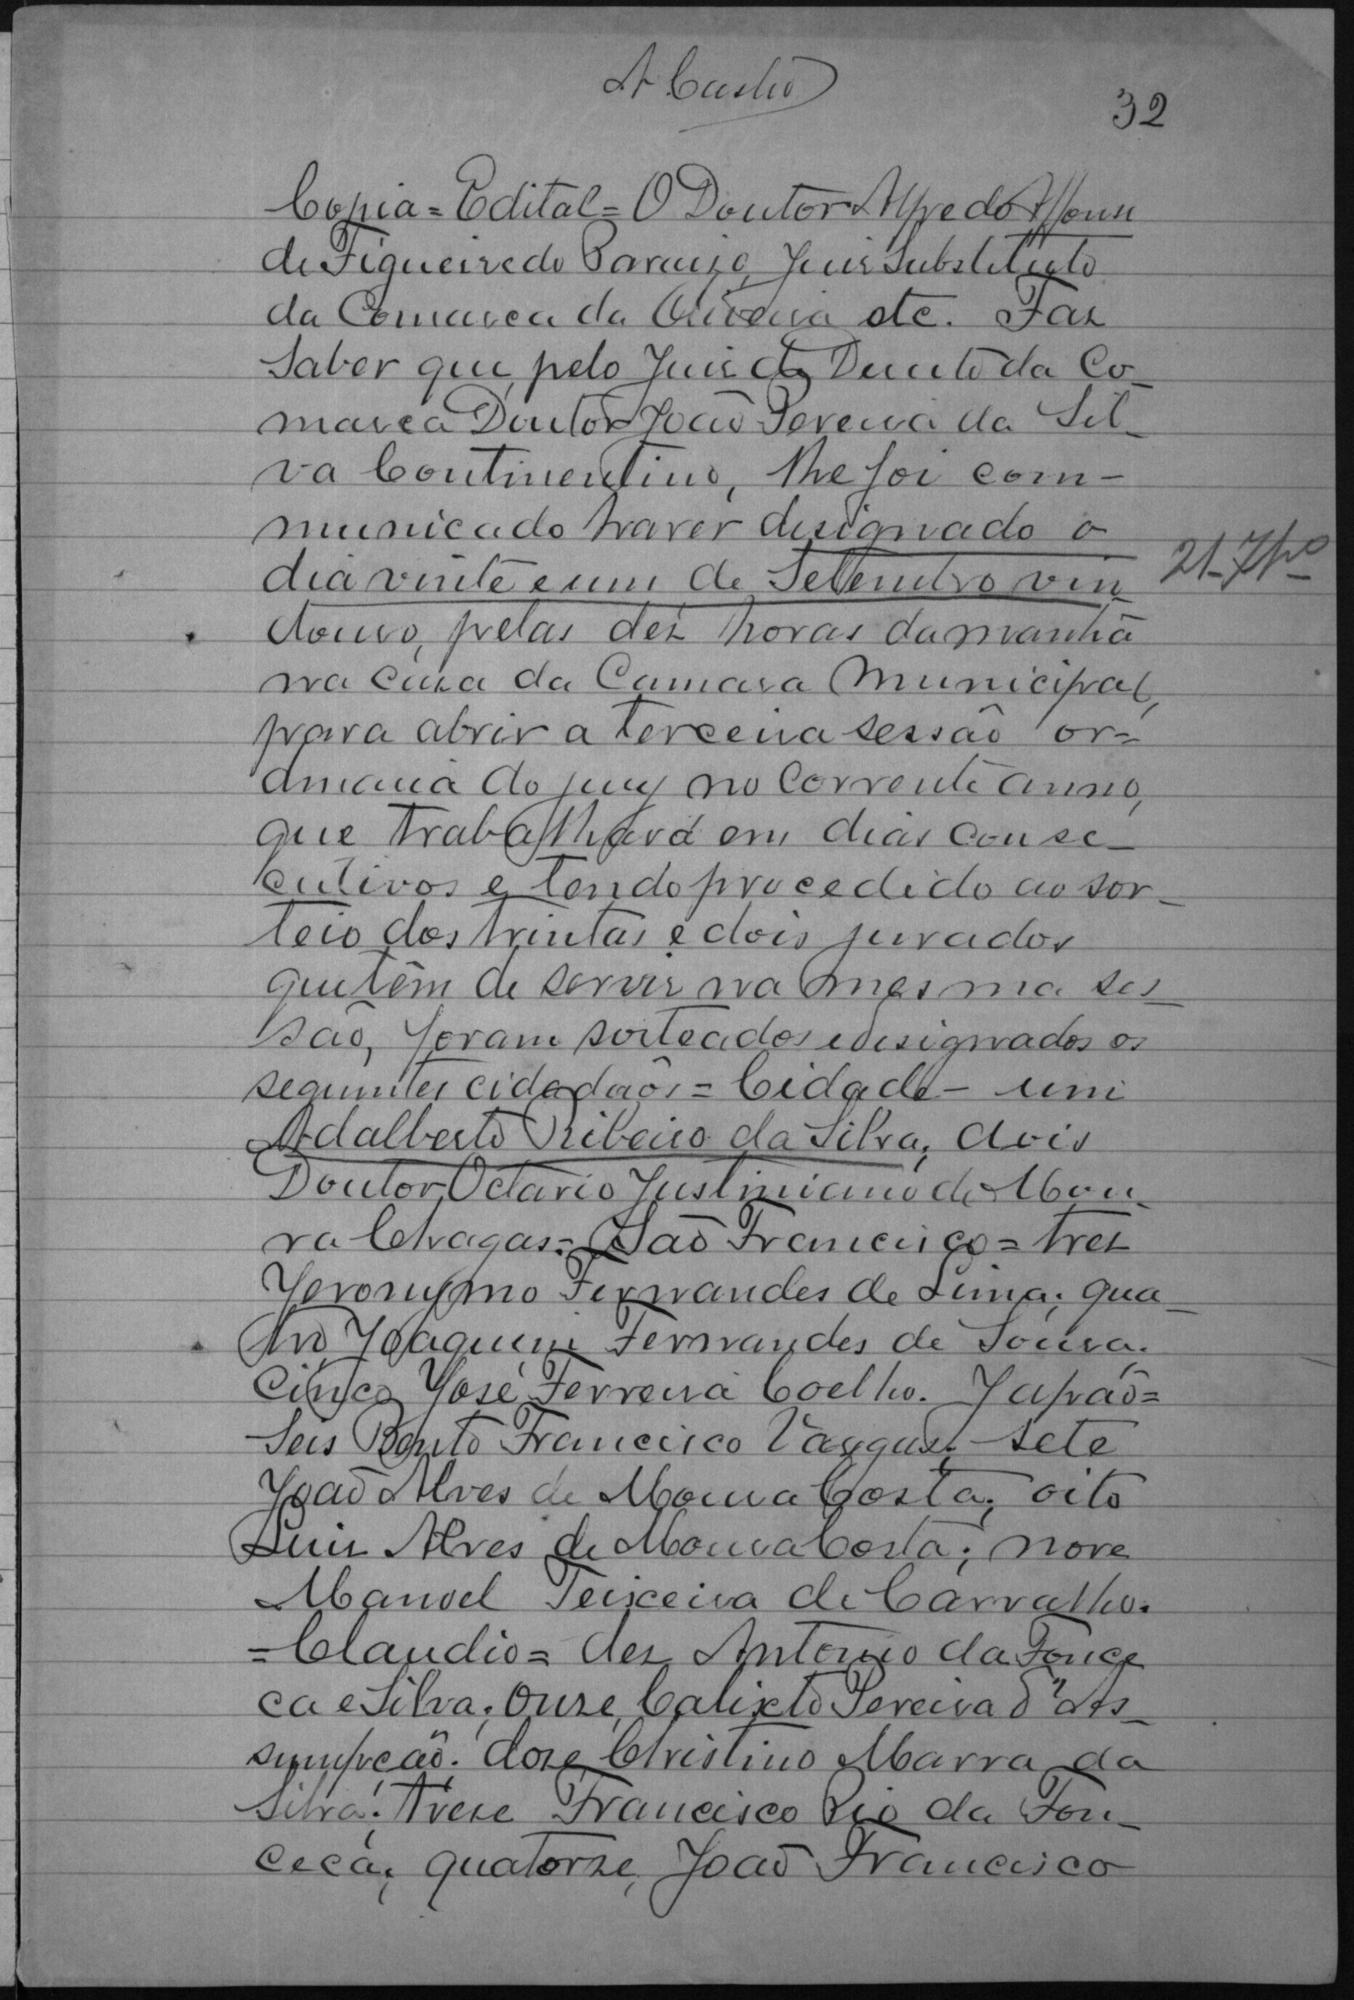 A Castro
32
Copia = Edital = O Doutor Alfredo Affonso
de Figueiredo Paraizo, Juiz Substituto
da Comarca da Oliveira etc. Faz
saber que, pelo Juiz de Direito da Co-
marca Doutor João Pereira da Sil-
va Continentino, lhe foi com-
municado haver designado o
dia vinte e um de Setembro vin-
21-7bro
douro, pelas dez horas da manhã
na casa da Camara Municipal,
para abrir a terceira sessão or=
dinaria do jury no corrente anno,
que trabalhará em dias conse-
cutivos e tendo procedido ao sor-
teio dos trintas e dois jurados
que têm de servir na mesma ses-
são, foram sorteados e designados os
seguintes cidadãos = Cidade - um
Adalberto Ribeiro da Silva; dois
Doutor Octavio Justiniano de Mou-
ra Chagas. = São Francisco = tres
Jeronymo Fernandes de Lima; qua-
tro Joaquim Fernandes de Sousa.
Cinco José Ferreira Coelho. Japão =
Seis Bento Francisco Vargas; sete
João Alves de Moura Costa; oito
Luiz Alves de Moura Costa; nove
Manoel Teixeira de Carvalho.
= Claudio = dez Antonio da Fonce
ca e Silva; onze, Calixto Pereira d'As-
sumpção. doze Christino Marra da
Silva; treze Francisco Rio da Fon-
ceca; quatorze, João Francisco